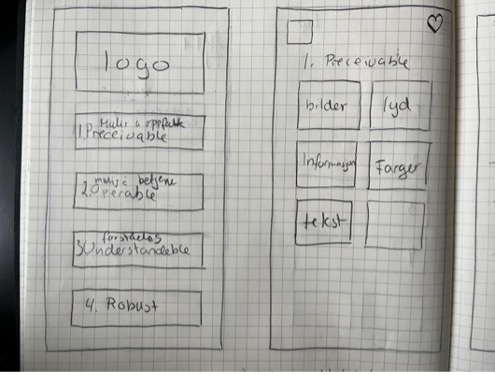 logo
Mulig å oppfatte
1. Preceivable
mulig å betjene
2. Operable
forståelig
3. Understandeble
4. Robust
1. Preceivable
bilder
lyd
Informasjon
Farger
tekst